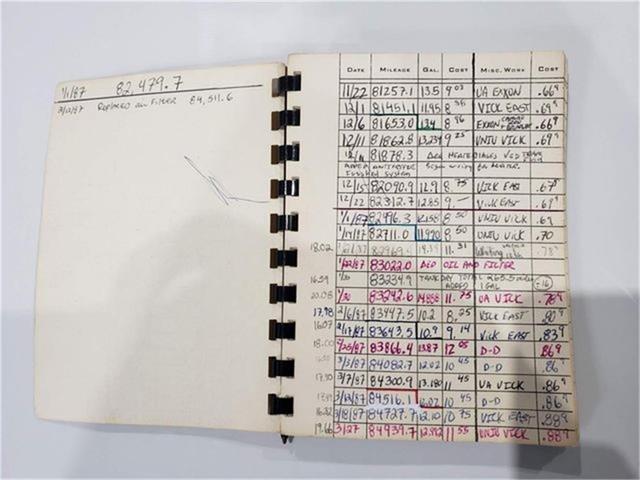 1/1/87 82,479.7
3/13/87 REPLACED AIR FILTER 84,511.6
DATE MILEAGE GAL. COST MISC. WORK COST
11/22 81257.1 13.5 9 03 UA EXXON .66⁹
12/1 81451.1 11.95 8 35 VICK EAST .69⁹
12/6 81653.0 13.4 8 96 EXXON .66⁹
12/11 81862.8 13.234 9 25 UNIV VICK .69⁹
12/11 81878.3
ADDED ANTIFREEZE
SYSTEM
12/15 82090.9 12.9 8.75 VICK EAST .67⁹
12/22 82312.7 12.85 9.— VICK EAST .69
1/1/87 8 50 UNIV VICK .69
1/14/87 82711.0 11.990 8 50 UNIV VICK .70
18.02 82969. 11.31 .78⁹
83022.0 OIL AND FILTER
16.59 1/30 83234.9 TANK DRY
ADDED 1 GAL
20.08 1/30 83242.6 14.858 11.75 UA VICK .78⁹
17.98 2/6/87 83447.5 10.2 8,25 VICK EAST .80⁹
16.07 2/17/87 83643.5 10.9 9.14 VICK EAST .83⁹
18.00 2/25/87 83866.4 13.87 12 05 D-D .86⁹
3/3/87 84082.7 12.02 10 45 D-D .86⁹
17.30 3/7/87 84300.9 13.180 11 45 UA VICK .86⁹
3/13/87 84516.1 12.02 10 45 D-D .86⁹
3/18/87 84727.7 12.10 10 75 VICK EAST .88⁹
19.66 3/27 84939.7 11 55 UNIV VICK .88⁹